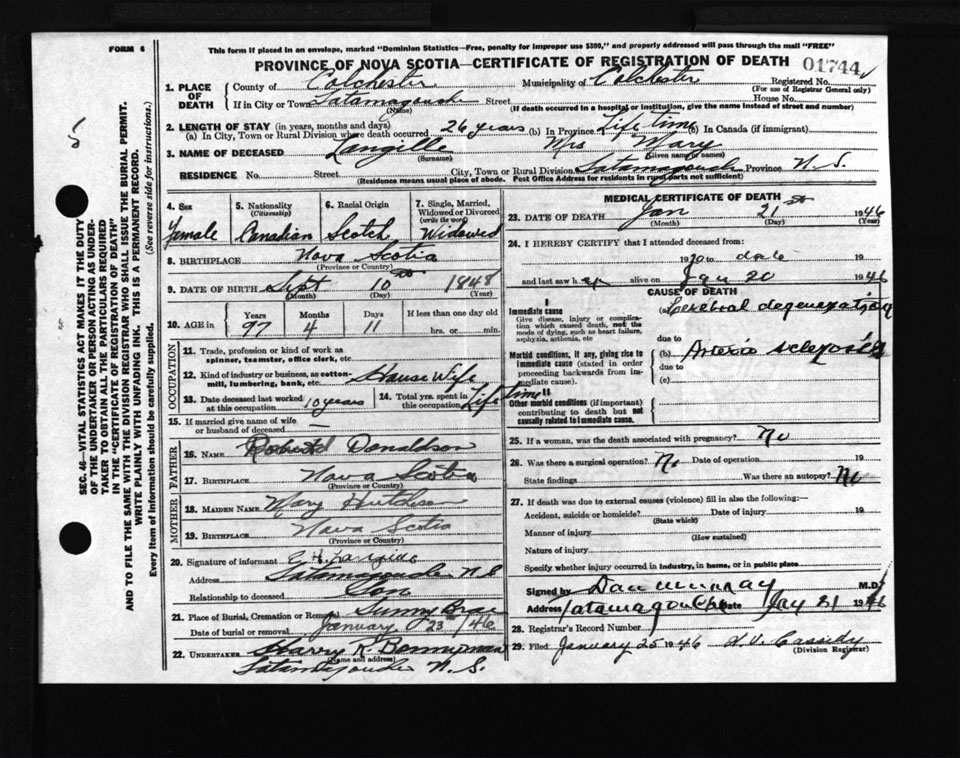 FORM 6
This form if placed in an envelope, marked "Dominion Statistics—Free, penalty for improper use $300," and properly addressed will pass through the mail "FREE"
PROVINCE OF NOVA SCOTIA—CERTIFICATE OF REGISTRATION OF DEATH 01744
SEC. 46—VITAL STATISTICS ACT MAKES IT THE DUTY
OF THE UNDERTAKER OR PERSON ACTING AS UNDER-
TAKER TO OBTAIN ALL THE PARTICULARS REQUIRED
IN THE "CERTIFICATE OF REGISTRATION OF DEATH"
AND TO FILE THE SAME WITH THE DIVISION REGISTRAR WHO SHALL ISSUE THE BURIAL PERMIT.
WRITE PLAINLY WITH UNFADING INK. THIS IS A PERMANENT RECORD.
Every item of information should be carefully supplied. (See reverse side for instructions.)
1. PLACE OF DEATH County of Colchester Municipality of Colchester Registered No.
(For use of Registrar General only)
If in City or Town Tatamagouche Street House No.
(Name) (If death occurred in a hospital or institution, give the name instead of street and number)
2. LENGTH OF STAY (in years, months and days)
(a) In City, Town or Rural Division where death occurred 26 years (b) In Province Life time (c) In Canada (if immigrant)
3. NAME OF DECEASED Langille Mrs Mary
(Surname) (Given name or names)
RESIDENCE No. Street City, Town or Rural Division Tatamagouche Province N.S.
(Residence means usual place of abode. Post Office Address for residents in rural parts not sufficient)
4. Sex
Female
5. Nationality
(Citizenship)
Canadian
6. Racial Origin
Scotch
7. Single, Married,
Widowed or Divorced
(write the word)
Widowed
8. BIRTHPLACE Nova Scotia
(Province or Country)
9. DATE OF BIRTH Sept 10 1848
(Month) (Day) (Year)
10. AGE in Years Months Days If less than one day old
97 4 11 hrs. or min.
OCCUPATION
11. Trade, profession or kind of work as
spinner, teamster, office clerk, etc.
12. Kind of industry or business, as cotton-
mill, lumbering, bank, etc. House Wife
13. Date deceased last worked
at this occupation 10 years
14. Total yrs. spent in
this occupation Life time
15. If married give name of wife
or husband of deceased —
FATHER
16. NAME Donaldson
17. BIRTHPLACE Nova Scotia
(Province or Country)
MOTHER
18. MAIDEN NAME Mary
19. BIRTHPLACE Nova Scotia
(Province or Country)
20. Signature of informant E. H. Langille
Address Tatamagouche N.S
Relationship to deceased Son
21. Place of Burial, Cremation or Removal Sunny Brae
Date of burial or removal January 23rd /46
22. UNDERTAKER Harry R. Bonnyman
(Name and address)
Tatamagouche N.S.
MEDICAL CERTIFICATE OF DEATH
23. DATE OF DEATH Jan 21st 1946
(Month) (Day)
24. I HEREBY CERTIFY that I attended deceased from:
1920 to date 19
and last saw h er alive on Jan 20 1946
CAUSE OF DEATH
I
Immediate cause
Give disease, injury or complica-
tion which caused death, not the
mode of dying, such as heart failure,
asphyxia, asthenia, etc
(a) Cerebral degeneration
due to
Morbid conditions, if any, giving rise to
immediate cause (stated in order
proceeding backwards from im-
mediate cause).
(b) Arterio sclerosis
due to
(c)
II
Other morbid conditions (if important)
contributing to death but not
causally related to immediate cause.
25. If a woman, was the death associated with pregnancy? No
26. Was there a surgical operation? No Date of operation 19
State findings Was there an autopsy? No
27. If death was due to external causes (violence) fill in also the following:—
Accident, suicide or homicide? Date of injury 19
(State which)
Manner of injury
(How sustained)
Nature of injury
Specify whether injury occurred in industry, in home, or in public place
Signed by Dan Murray M.D.
Address Tatamagouche Date Jan 21 1946
28. Registrar's Record Number
29. Filed January 25 1946 Cassidy
(Division Registrar)